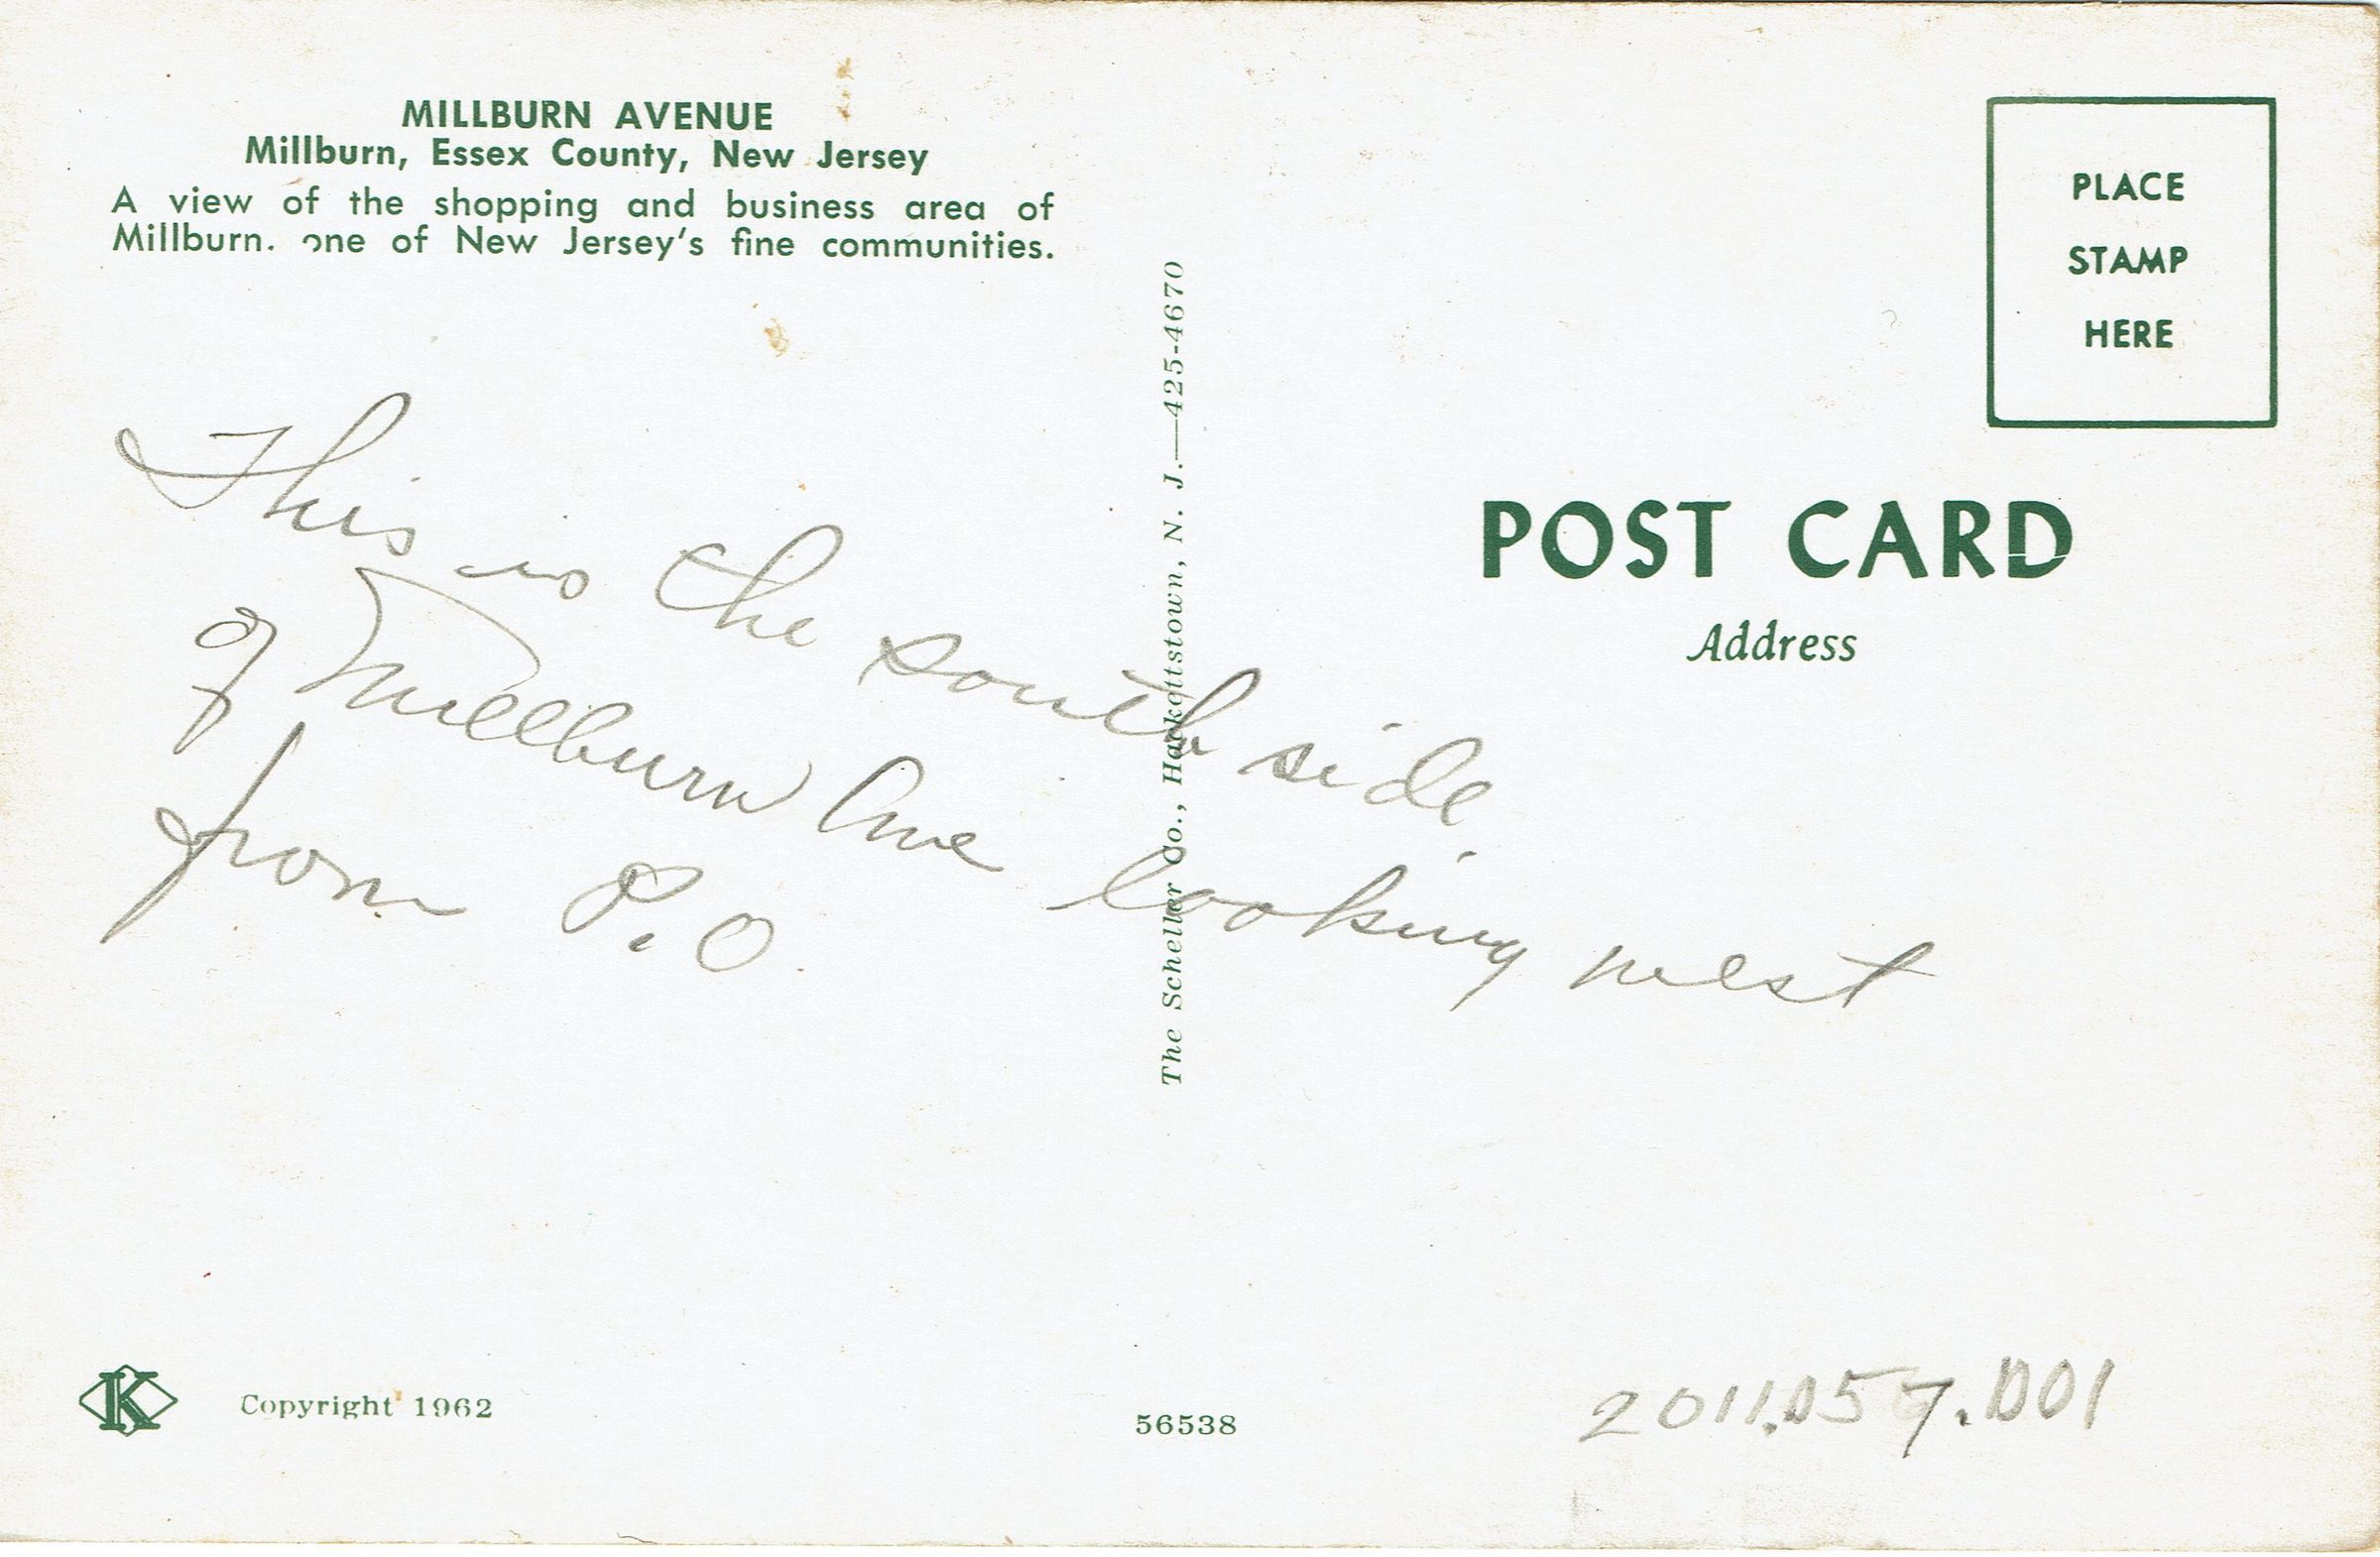 MILLBURN AVENUE
Millburn, Essex County, New Jersey
A view of the shopping and business area of
Millburn. one of New Jersey's fine communities.
PLACE
STAMP
HERE
POST CARD
Address
This is the south side
of Millburn Ave looking west
from P.O.
The Scheller Co., Hackettstown, N. J.—425-4670
K
Copyright 1962
56538
2011.057.001